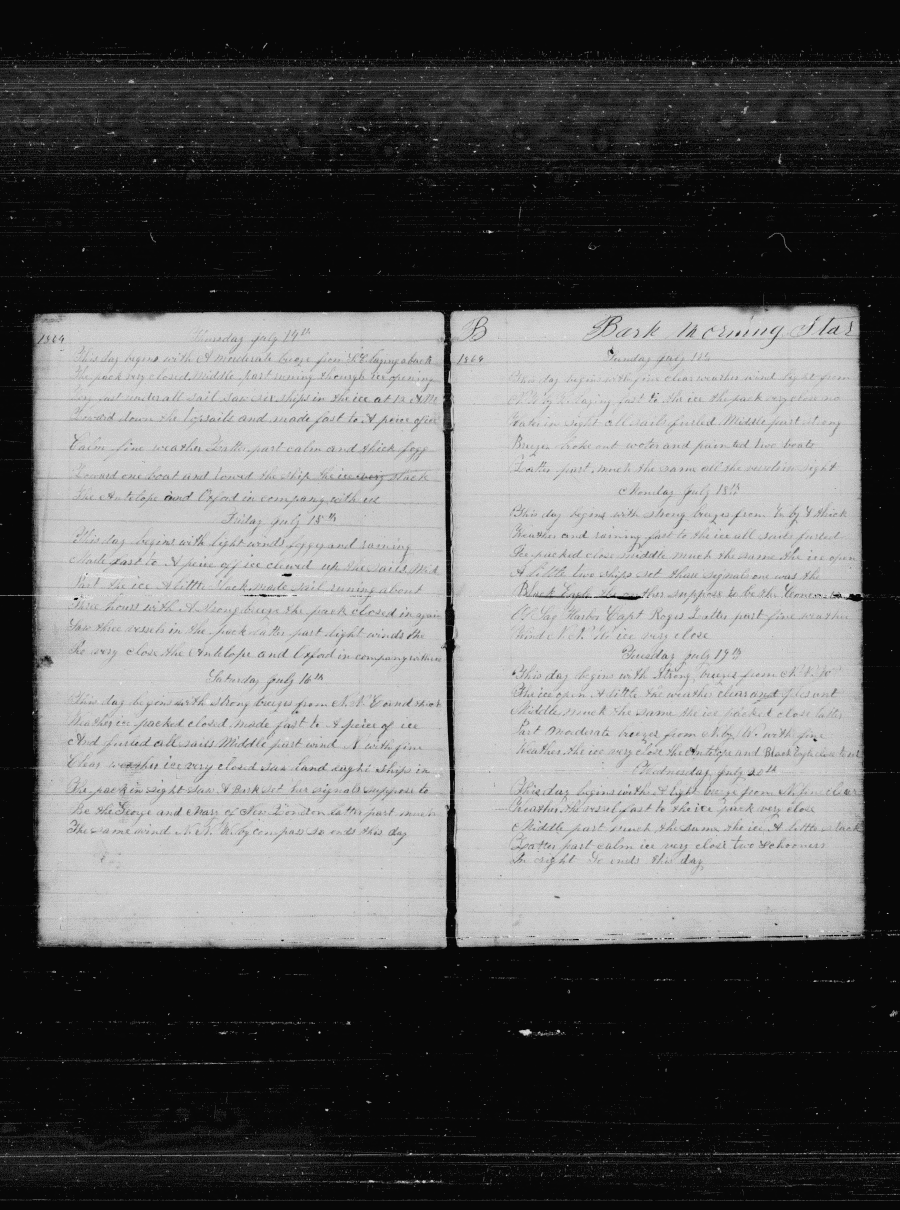 1864
Thursday July 14th
This day begins with A moderate breeze from N.E laying aback
The pack very closed Middle part runing through ice opening
very fast under all sail saw six ships in the ice at 12 A.M.
Lowerd down the topsails and made fast to A peice of ice
Calm fine weather Latter part calm and thick fogg
Lowerd one boat and towed the ship the ice very slack
The Antelope and Oxford in company with us
Friday July 15th
This day begins with light winds foggy and raining
Made fast to A peice of ice clewed up the sails
the ice A little slack made sail runing about
three hours with A Strong breeze the pack closed in again
Saw three vessels in the pack latter part light winds the
Ice very close the Antelope and Oxford in company with us
Saturday July 16th
This day begins with strong breezes from N.N.E and thick
Weather ice packed closed made fast to A peice of ice
And furled all sails Middle part wind N with fine
Clear weather ice very closed saw land eight ships in
The pack in sight Saw A Bark set her signals suppose to
Be the George and Mary of New London latter part much
The same wind N.N.W. by compass so ends this day
B
Bark Morning Star
1864
Sunday July 17th
This day begins with fine clear weather wind light from
laying fast to the ice the pack very close no
Water in sight all sails furled Middle part strong
Breezes broke out water and painted two boats
Latter part much the same all the vessels in sight
Monday July 18th
This day begins with strong breezes from thick
Weather and raining fast to the ice all sails furled
The packed close Middle much the same the ice open
A little two ships set thair signals one was the
Black Eagle the other suppose to be the
Of Sag Harbor Capt Roges Latter part fine weather
Wind N.N.W ice very close
Tuesday July 19th
This day begins with Strong breezes from N.N.W
The ice open A little the weather clear and plesant
Middle much the same the ice packed close latter
Part moderate breezes from N by W. with fine
Weather the ice very close the Antelope and Black Eagle close to us
Wednesday July 20th
This day begins with A light breeze from fine clear
Weather the vessel fast to the ice pack very close
Middle part much the same the ice A little slack
Latter part calm ice very close two schooners
In sight So ends this day